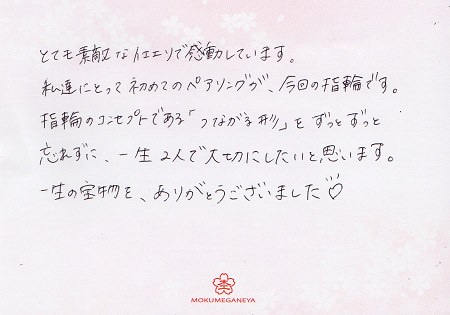 とても素敵な仕上りで感動しています。
私達にとって初めてのペアリングが、今回の指輪です。
指輪のコンセプトである「つながる形」をずっとずっと
忘れずに、一生2人で大切にしたいと思います。
一生の宝物を、ありがとうございました♡
MOKUMEGANEYA